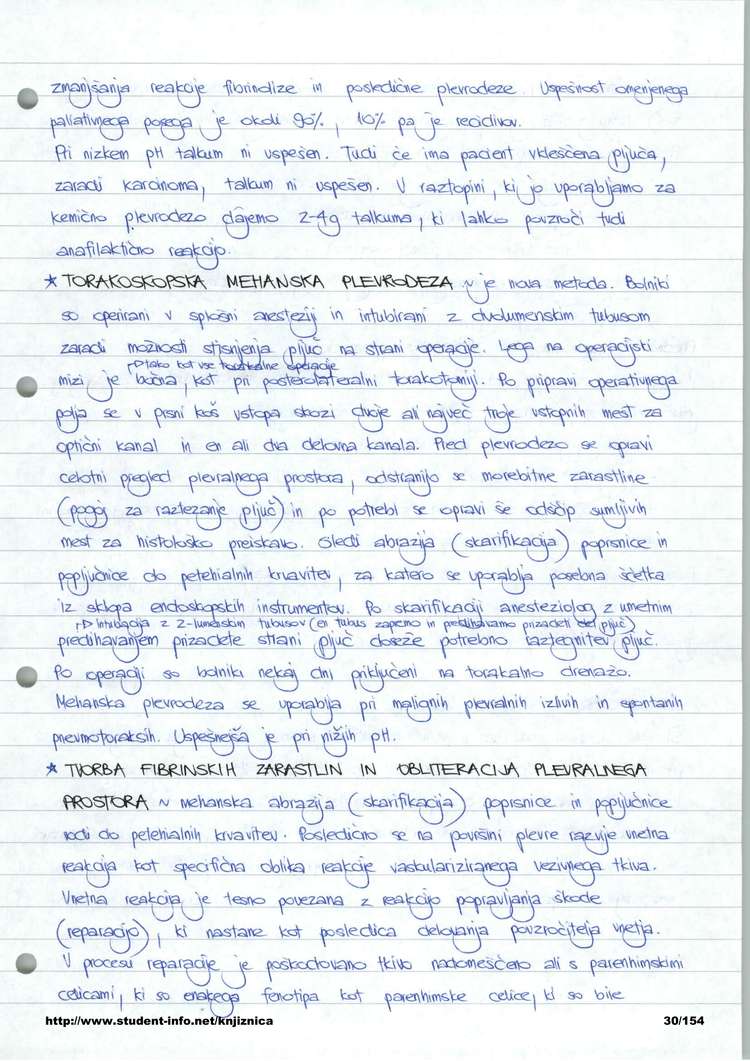 zmanjšanja reakcije fibrinolize in posledične plevrodeze. Uspešnost omenjenega
paliativnega posega je okoli 90%, 10% pa je recidivov.
Pri nizkem pH talkum ni uspešen. Tudi če ima pacient vkleščena pljuča,
zaradi karcinoma, talkum ni uspešen. V raztopini, ki jo uporabljamo za
kemično plevrodezo dajemo 2-4g talkuma, ki lahko povzroči tudi
anafilaktično reakcijo.
* TORAKOSKOPSKA MEHANSKA PLEVRODEZA ~ je nova metoda. Bolniki
so operirani v splošni anesteziji in intubirani z dvolumenskim tubusom
zaradi možnosti stisnjenja pljuč na strani operacije. Lega na operacijski
→ tako kot vse torakalne operacije
mizi je bočna, kot pri posterolateralni torakotomiji. Po pripravi operativnega
polja se v prsni koš vstopa skozi dvoje ali največ troje vstopnih mest za
optični kanal in en ali dva delovna kanala. Pred plevrodezo se opravi
celotni pregled plevralnega prostora, odstranijo se morebitne zarastline
(pogoj za raztezanje pljuč) in po potrebi se opravi še odščip sumljivih
mest za histološko preiskavo. Sledi abrazija (skarifikacija) poprsnice in
popljučnice do petehialnih krvavitev, za katero se uporablja posebna ščetka
iz sklopa endoskopskih instrumentov. Po skarifikaciji anesteziolog z umetnim
→ Intubacija z 2-lumenskim tubusov (en tubus zapremo in predihavamo prizadeti del pljuč)
predihavanjem prizadete strani pljuč doseže potrebno raztegnitev pljuč.
Po operaciji so bolniki nekaj dni priključeni na torakalno drenažo.
Mehanska plevrodeza se uporablja pri malignih plevralnih izlivih in spontanih
pnevmotoraksih. Uspešnejša je pri nižjih pH.
* TVORBA FIBRINSKIH ZARASTLIN IN OBLITERACIJA PLEVRALNEGA
PROSTORA ~ mehanska abrazija (skarifikacija) poprsnice in popljučnice
vodi do petehialnih krvavitev. Posledično se na površini plevre razvije vnetna
reakcija kot specifična oblika reakcije vaskulariziranega vezivnega tkiva.
Vnetna reakcija je tesno povezana z reakcijo popravljanja škode
(reparacijo), ki nastane kot posledica delovanja povzročitelja vnetja.
V procesu reparacije je poškodovano tkivo nadomeščeno ali s parenhimskimi
celicami, ki so enakega fenotipa kot parenhimske celice, ki so bile
http://www.student-info.net/knjiznica 30/154